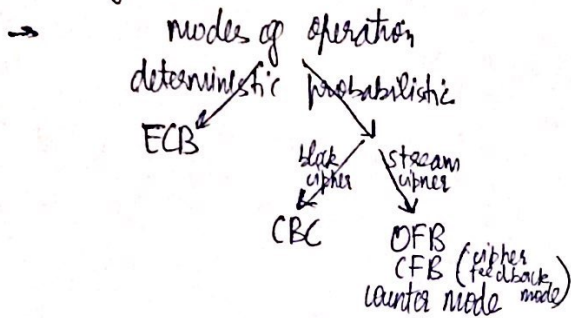 → modes of operation
deterministic probabilistic
ECB
block stream
cipher cipher
CBC OFB
CFB (cipher
feedback
counter mode mode)